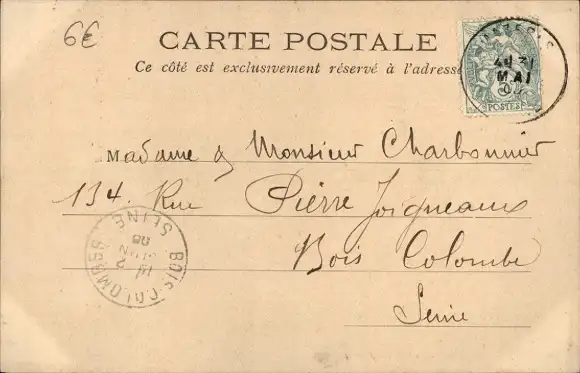 6€
CARTE POSTALE
Ce côté est exclusivement réservé à l'adresse
MAI
5c
POSTES
Madame & Monsieur Charbonnier
134. Rue Pierre Joigneaux
Bois Colombe
Seine
BOIS-COLOMBES
SEINE